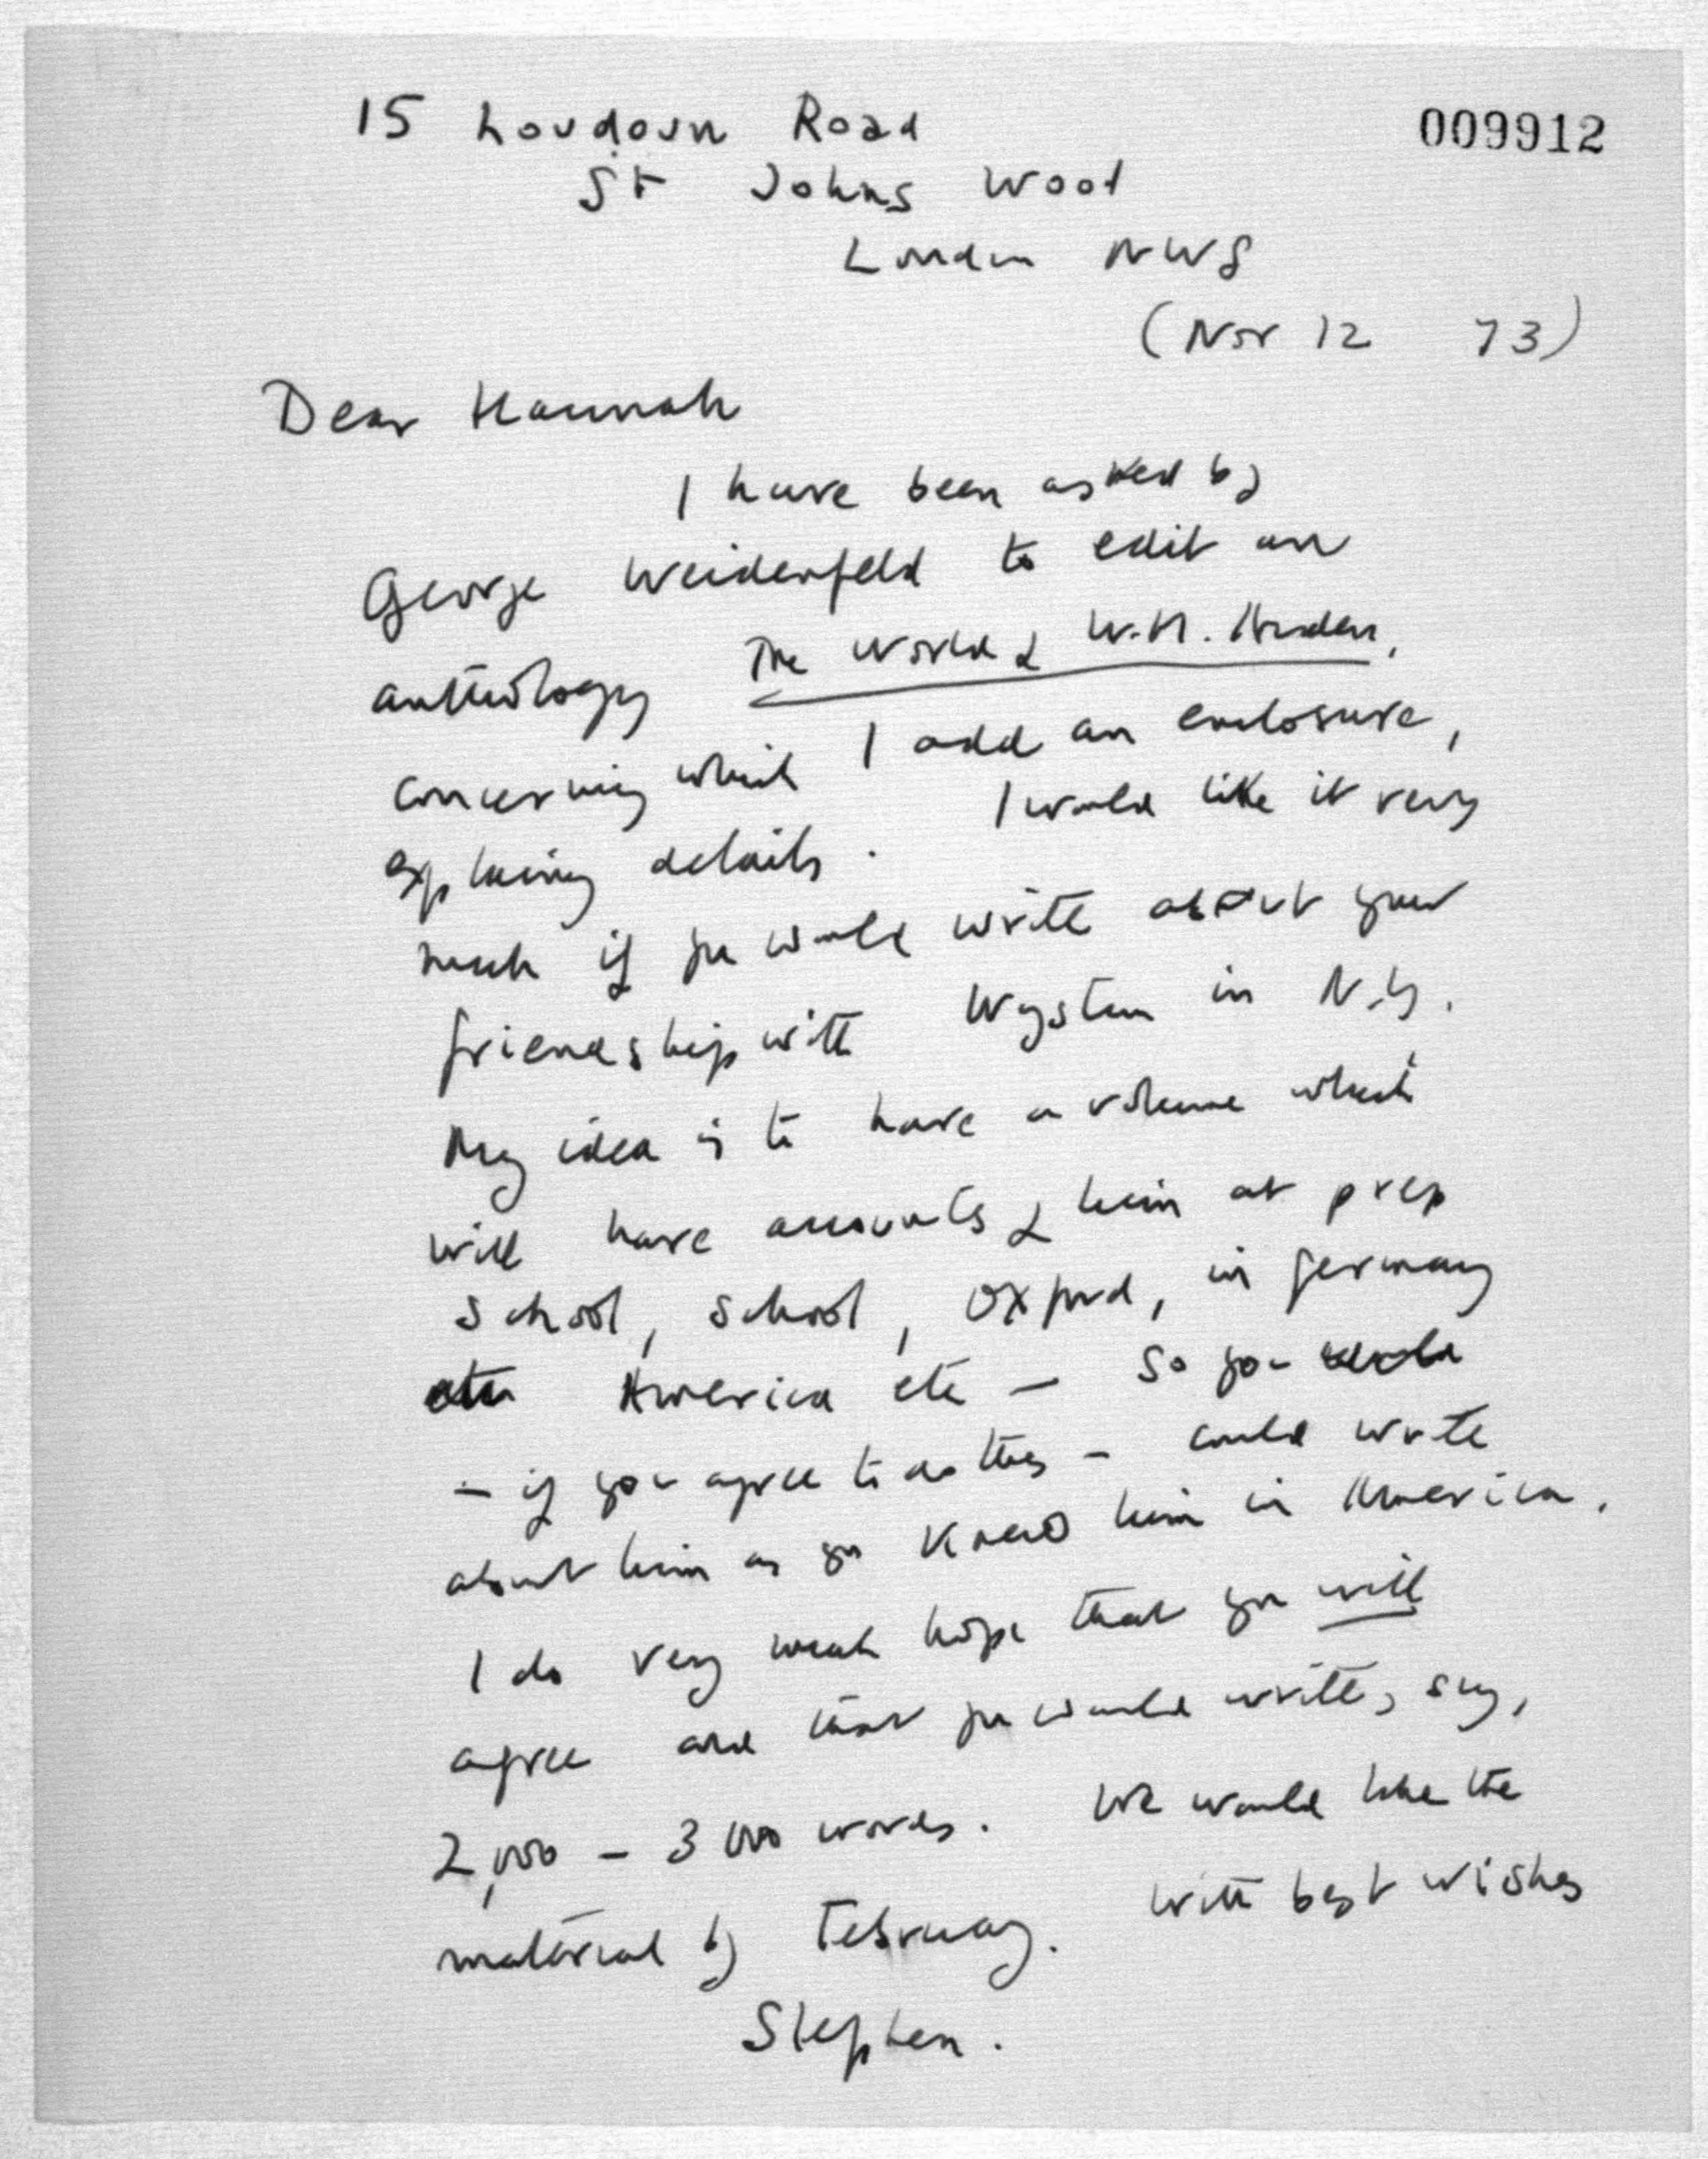 15 Loudoun Road
009912
St Johns Wood
London NW8
(Nov 12 73)
Dear Hannah
I have been asked by
George Weidenfeld to edit an
anthology The World of W.H. Auden,
concerning which I add an enclosure,
explaining details. I would like it very
much if you would write about your
friendship with Wystan in N.Y.
My idea is to have a volume which
will have accounts of him at prep
school, school, Oxford, in Germany
America etc — so you
— if you agree to do this — could write
about him as you knew him in America.
I do very much hope that you will
agree and that you would write, say,
2,000 — 3 000 words. We would like the
material by February. With best wishes
Stephen.